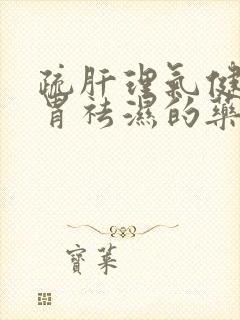 疏肝理氣健
胃祛濕的藥
寶萊